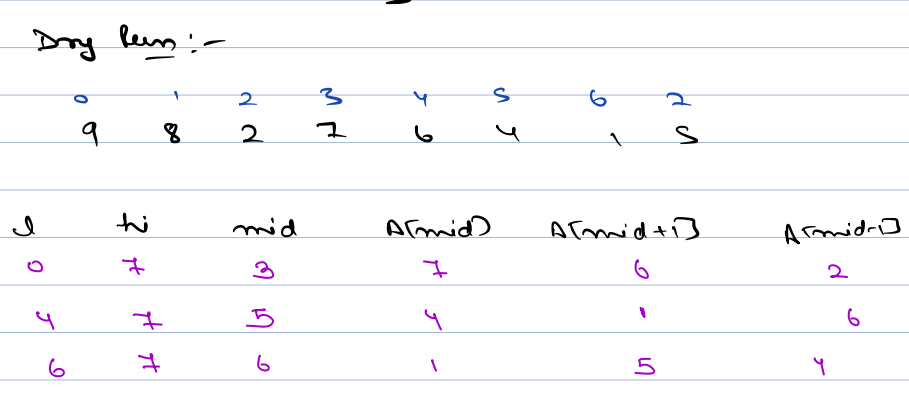 Dry Run :-
0 1 2 3 4 5 6 7
9 8 2 7 6 4 1 5
l hi mid A[mid] A[mid+1] A[mid-1]
0 7 3 7 6 2
4 7 5 4 1 6
6 7 6 1 5 4